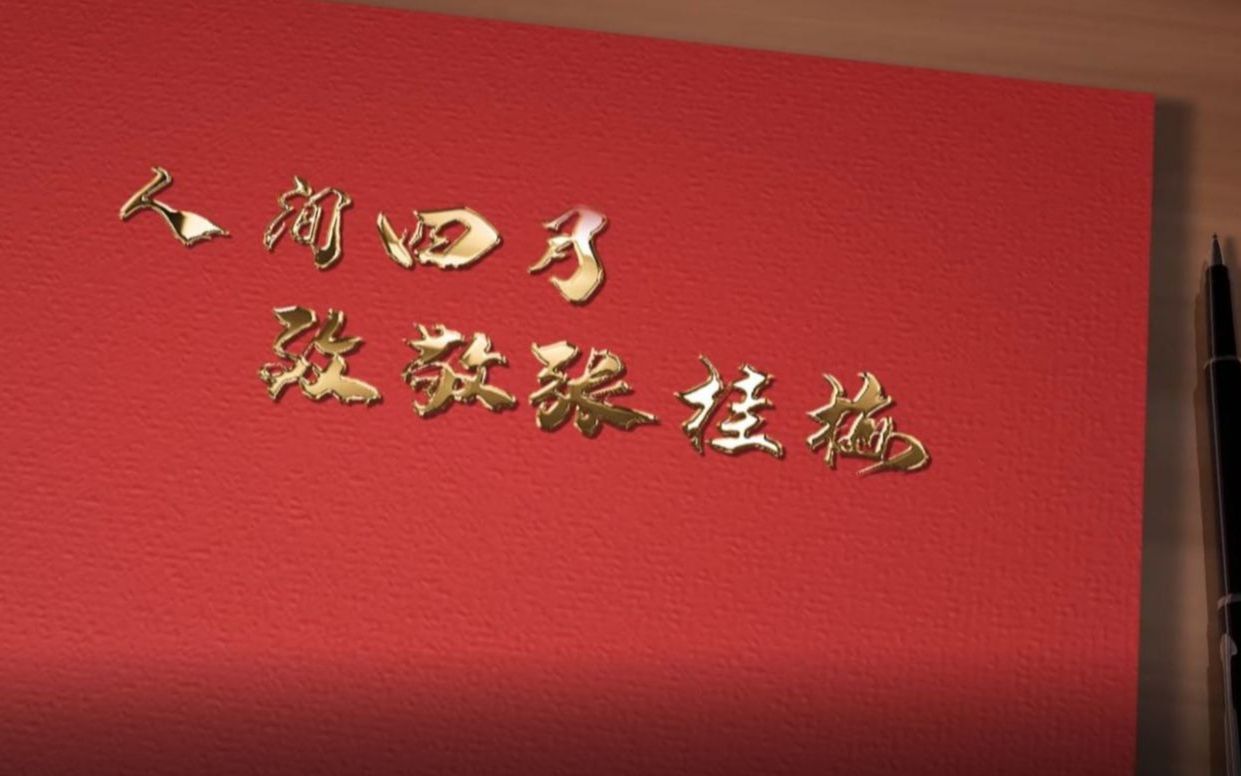 人间四月
致敬张桂梅